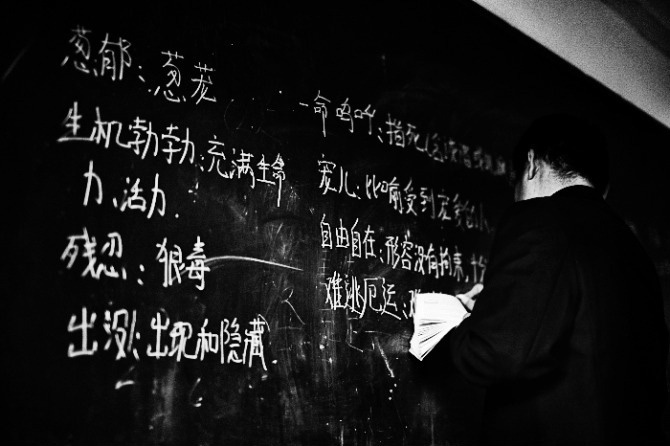 葱郁：葱茏
生机勃勃：充满生命
力、活力.
残忍：狠毒
出没：出现和隐藏.
一命呜呼：指死
宠儿：比喻受到宠爱的
自由自在：形容没有拘束，十分
难逃厄运：